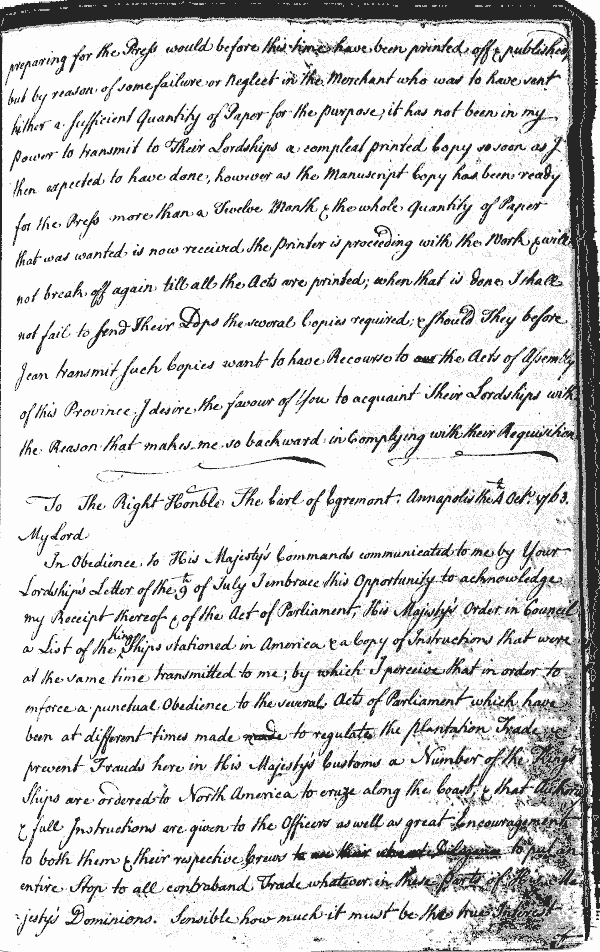 preparing for the Press would before this time have been printed off & published
but by reason of some failure or Neglect in the Merchant who was to have sent
hither a sufficient Quantity of Paper for the purpose, it has not been in my
power to transmit to Their Lordships a compleat printed Copy so soon as I
then expected to have done, however as the Manuscript Copy has been ready
for the Press more than a Twelve Month & the whole Quantity of Paper
that was wanted is now received the Printer is proceeding with the Work & will
not break off again till all the Acts are printed; when that is done I shall
not fail to send Their Ldps the several Copies required; & should They before
I can transmit such Copies want to have Recourse to the Acts of Assembly
of this Province I desire the favour of You to acquaint Their Lordships with
the Reason that makes me so backward in Complying with their Requisition
To The Right Honble The Earl of Egremont. Annapolis the 4th Octr 1763.
My Lord
In Obedience to His Majesty's Commands communicated to me by Your
Lordship's Letter of the 9th of July I embrace this Opportunity to acknowledge
my Receipt thereof & of the Act of Parliament, His Majesty's Order in Council
a List of the King's Ships stationed in America & a Copy of Instructions that were
at the same time transmitted to me; by which I perceive that in order to
enforce a punctual Obedience to the several Acts of Parliament which have
been at different times made made to regulate the Plantation Trade &
prevent Frauds here in His Majesty's Customs a Number of the King's
Ships are ordered to North America to cruze along the Coast, & that
& full Instructions are given to the Officers as well as great Encouragement
to both them & their respective Crews to put an
entire Stop to all contraband Trade whatever in these Parts of His Ma
-jesty's Dominions. Sensible how much it must be the true Interest